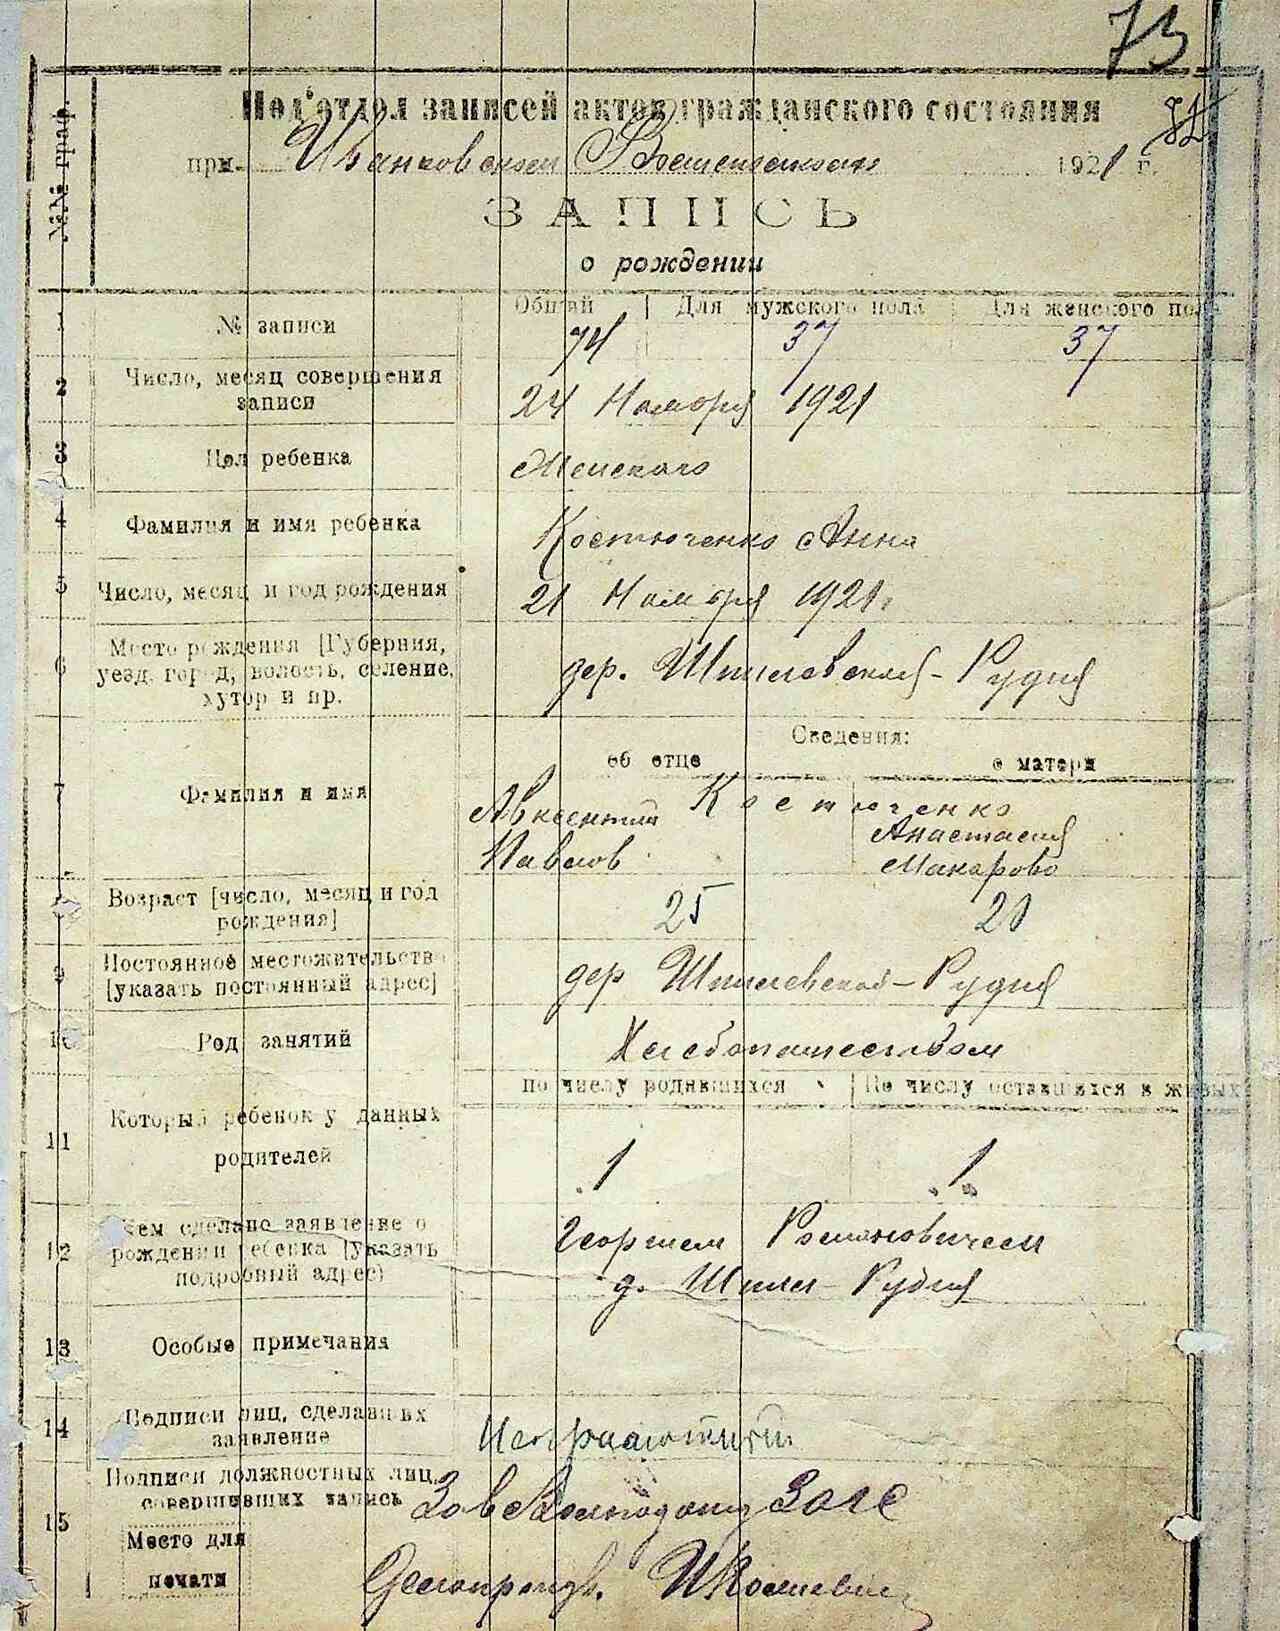 73
Под'отдел записей актов гражданского состояния
при Иванковском Волисполкоме 1921 г.
№№ граф
ЗАПИСЬ
о рождении
Общий | Для мужского пола | Для женского пола
1 № записи 74 37 37
2 Число, месяц совершения
записи 24 Ноября 1921
3 Пол ребенка Женского
4 Фамилия и имя ребенка Костюченко Анна
5 Число, месяц и год рождения 21 Ноября 1921г
6 Место рождения [Губерния,
уезд, город, волость, селение,
хутор и пр. дер. Шпилевская-Рудня
Сведения:
об отце о матери
7 Фамилия и имя Костюченко
Авксентий Анастасия
Павлов Макарово
Возраст [число, месяц и год
рождения] 25 20
9 Постоянное местожительство
[указать постоянный адрес] дер Шпилевская-Рудня
10 Род занятий Хлебопашеством
по числу родившихся | По числу оставшихся в живых
11 Который ребенок у данных
родителей 1 1
12 Кем сделано заявление о
рождении ребенка [указать
подробный адрес) Георгием Романовичем
д. Шпил-Рудня
13 Особые примечания
14 Подписи лиц, сделавших
заявление Неграмотный
15 Подписи должностных лиц,
совершивших запись Зав Загс
Место для
печати Делопроизв.